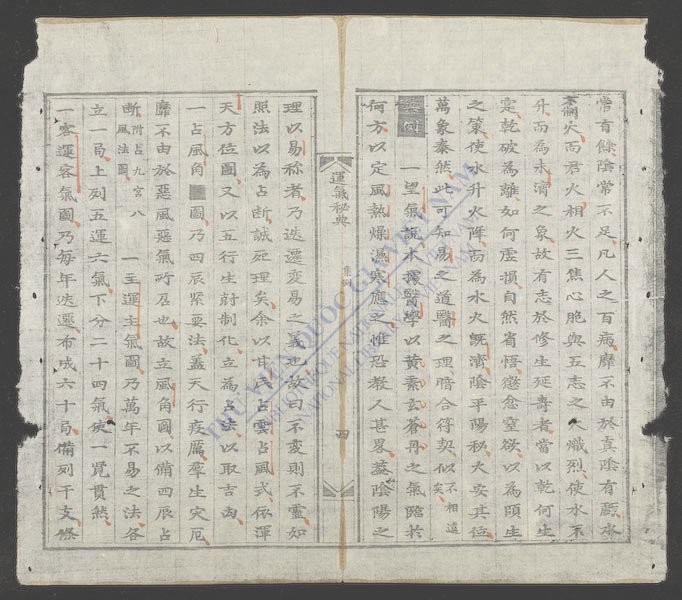 常有餘陰常不足凡人之百病靡不由於真陰有虧水
不制火而君火相火三焦心胞與五志之火熾烈使水不
升而為未濟之象故有志於修生延壽者當以乾何生
寔乾破為離如何虛損自然省悟懲忿窒欲以為頤生
之策使水升火降而為水火既濟陰平陽秘大安其恆
萬象泰然此可知易之道醫之理暗合符契似不相遠矣
一望氣說本攘醫學以黃素玄蒼丹之氣臨於
何方以定風熱燥濕寒應之惟恐教人甚畧蓋陰陽之
運氣秘典
四
理以易称者乃迭遷变易之義也故曰不变則不靈如
照法以為占断誠死理矣余以甘氏占雲占風式依渾
天方位圖又以五行生尅制化立為占法以取吉凶
一占風角圖乃四辰緊要法蓋天行疫厲羣生灾厄
靡不由於惡風惡氣所召也故立風角圖以備四辰占
断附占九宮八風法圖
一主運主氣圖乃萬年不易之法各
立一局上列五運六氣下分二十四氣候一覽貫然
一客運客氣圖乃每年迭遷布成六十局備列干支條
THƯ VIỆN QUỐC GIA VIỆT NAM
BIBLIOTHÈQUE NATIONALE DU VIETNAM
NATIONAL LIBRARY OF VIETNAM